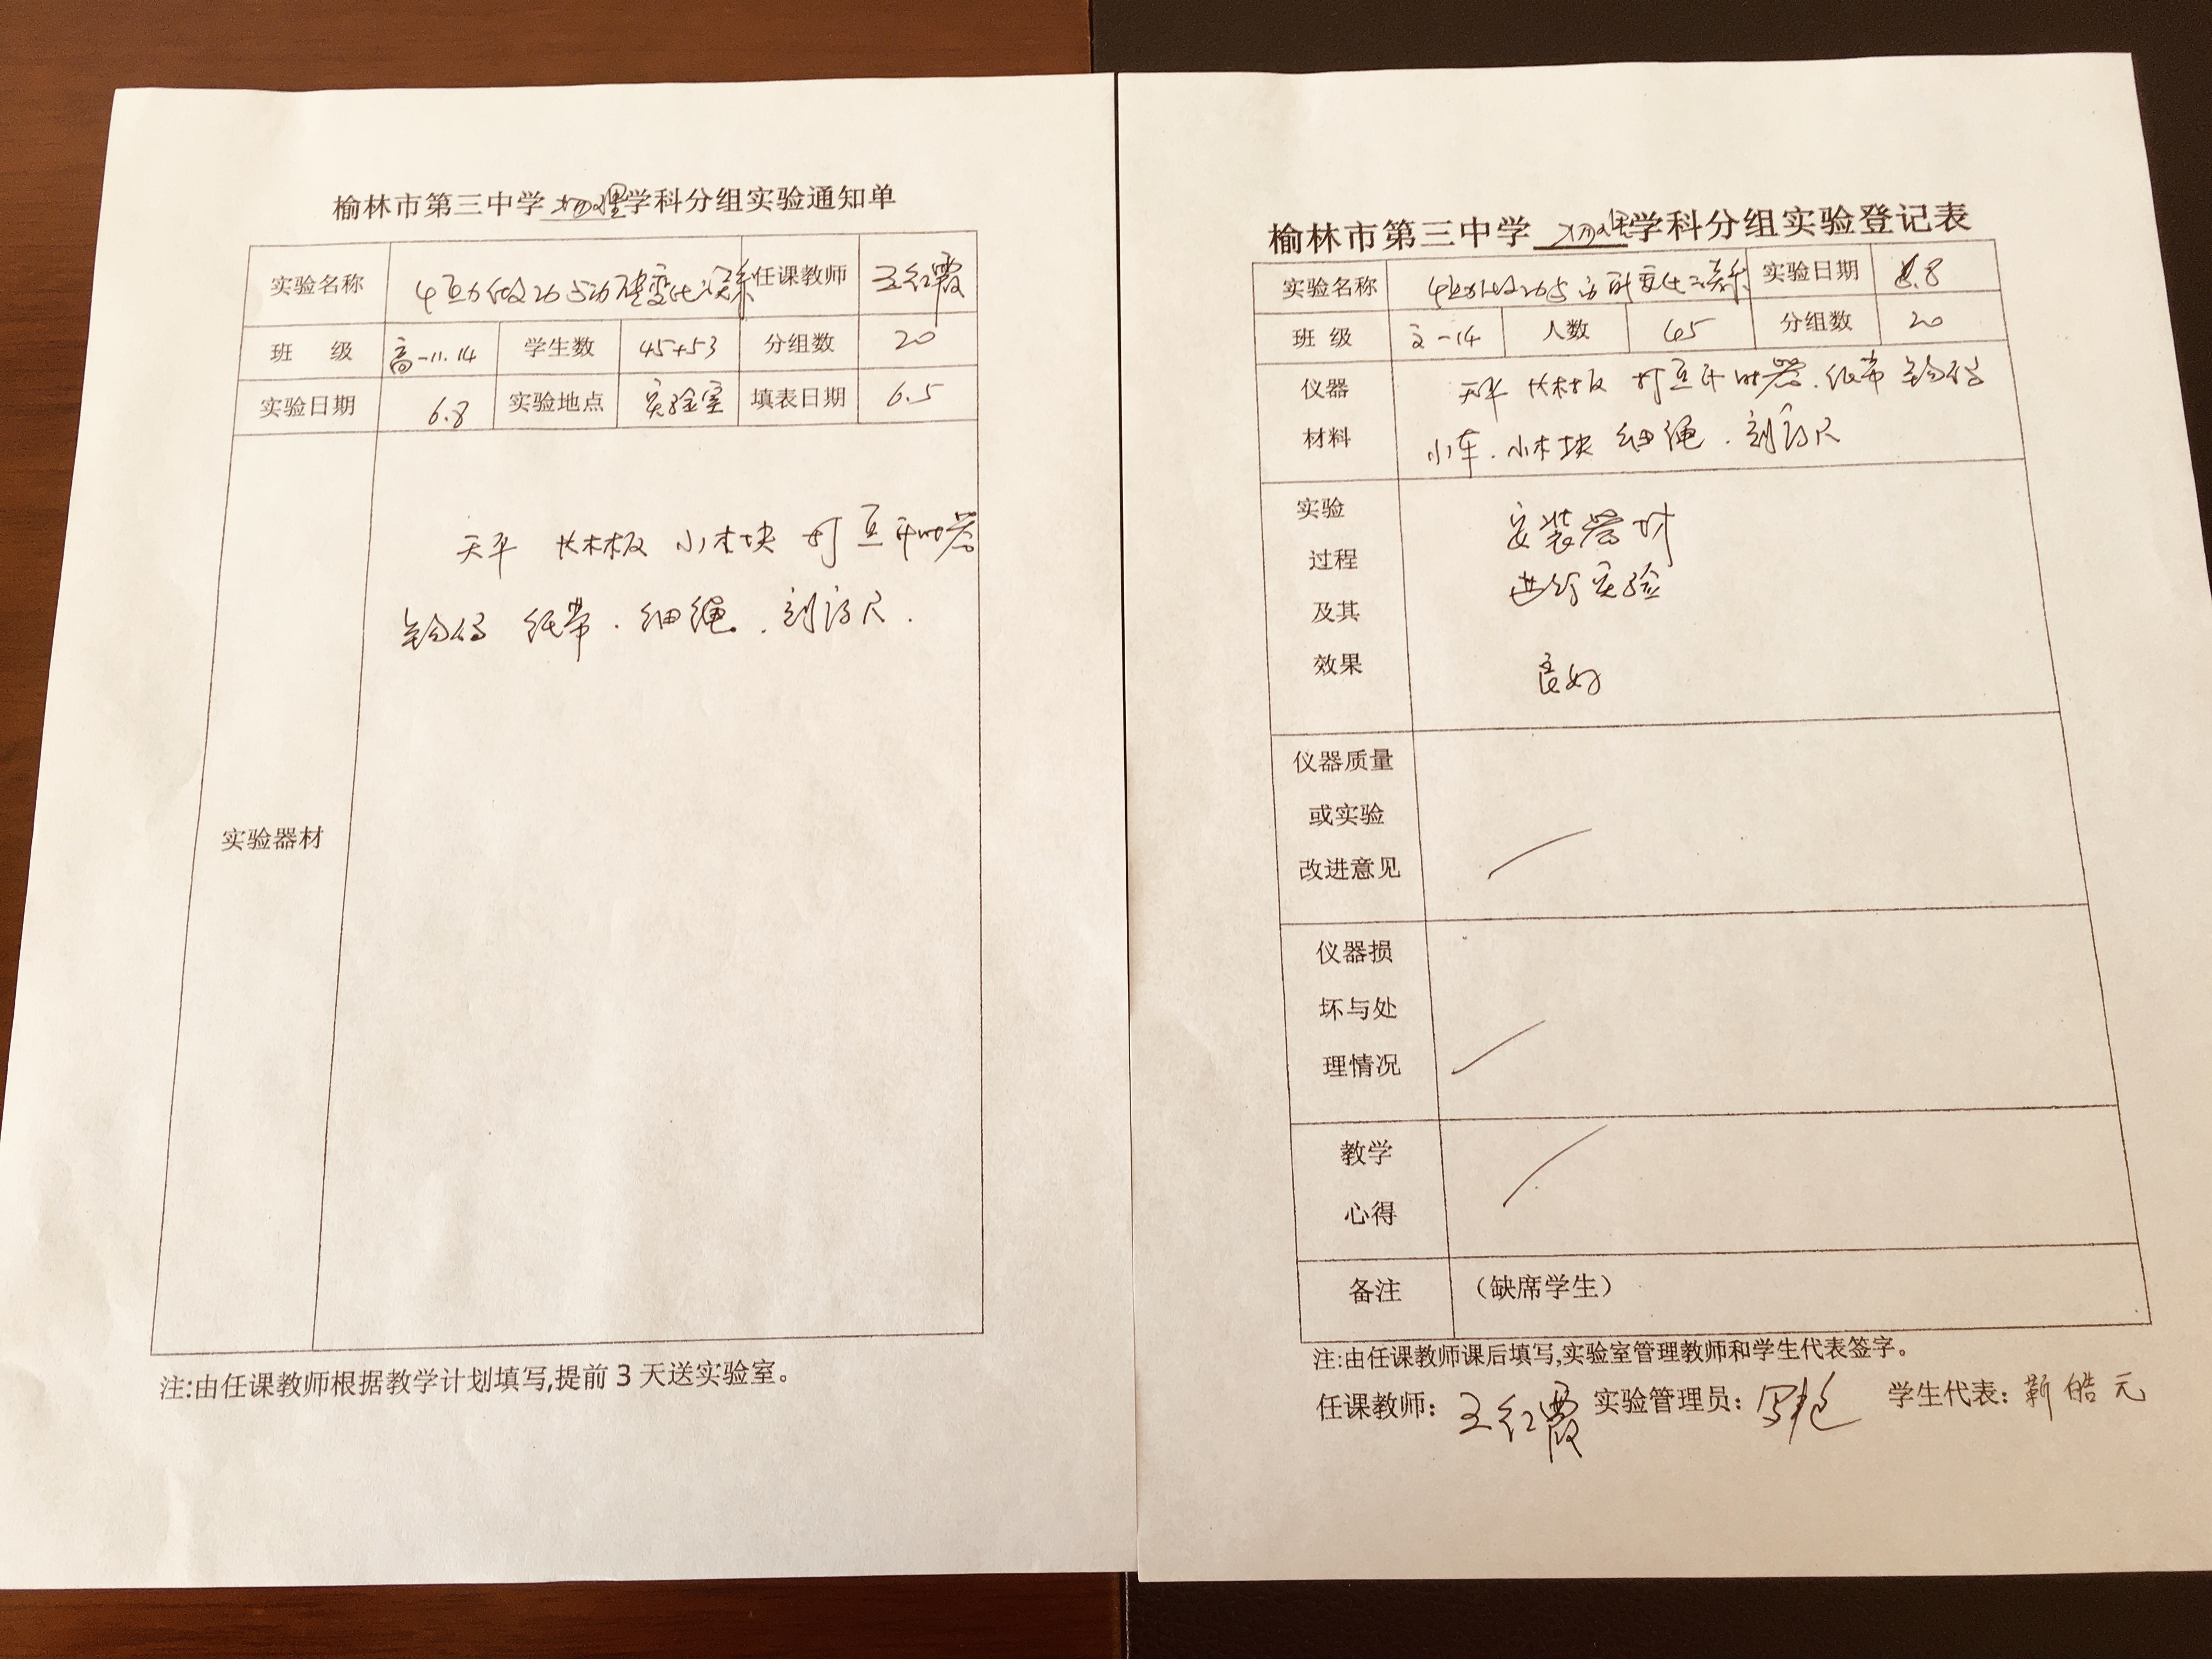 榆林市第三中学 物理 学科分组实验通知单
实验名称 恒力做功与动能变化关系 任课教师 王红霞
班 级 高一11.14 学生数 45+53 分组数 20
实验日期 6.8 实验地点 实验室 填表日期 6.5
实验器材
天平 长木板 小木块 打点计时器
钩码 纸带．细绳．刻度尺．
注:由任课教师根据教学计划填写,提前 3 天送实验室。
榆林市第三中学 物理 学科分组实验登记表
实验名称 恒力做功与动能变化关系 实验日期 6.8
班 级 高一14 人数 45 分组数 20
仪器
材料
天平 长木板 打点计时器．纸带 钩码
小车．小木块 细绳．刻度尺
实验
过程
及其
效果
安装器材
进行实验
良好
仪器质量
或实验
改进意见
仪器损
坏与处
理情况
教学
心得
备注 （缺席学生）
注:由任课教师课后填写,实验室管理教师和学生代表签字。
任课教师: 王红霞 实验管理员: 学生代表: 靳皓元